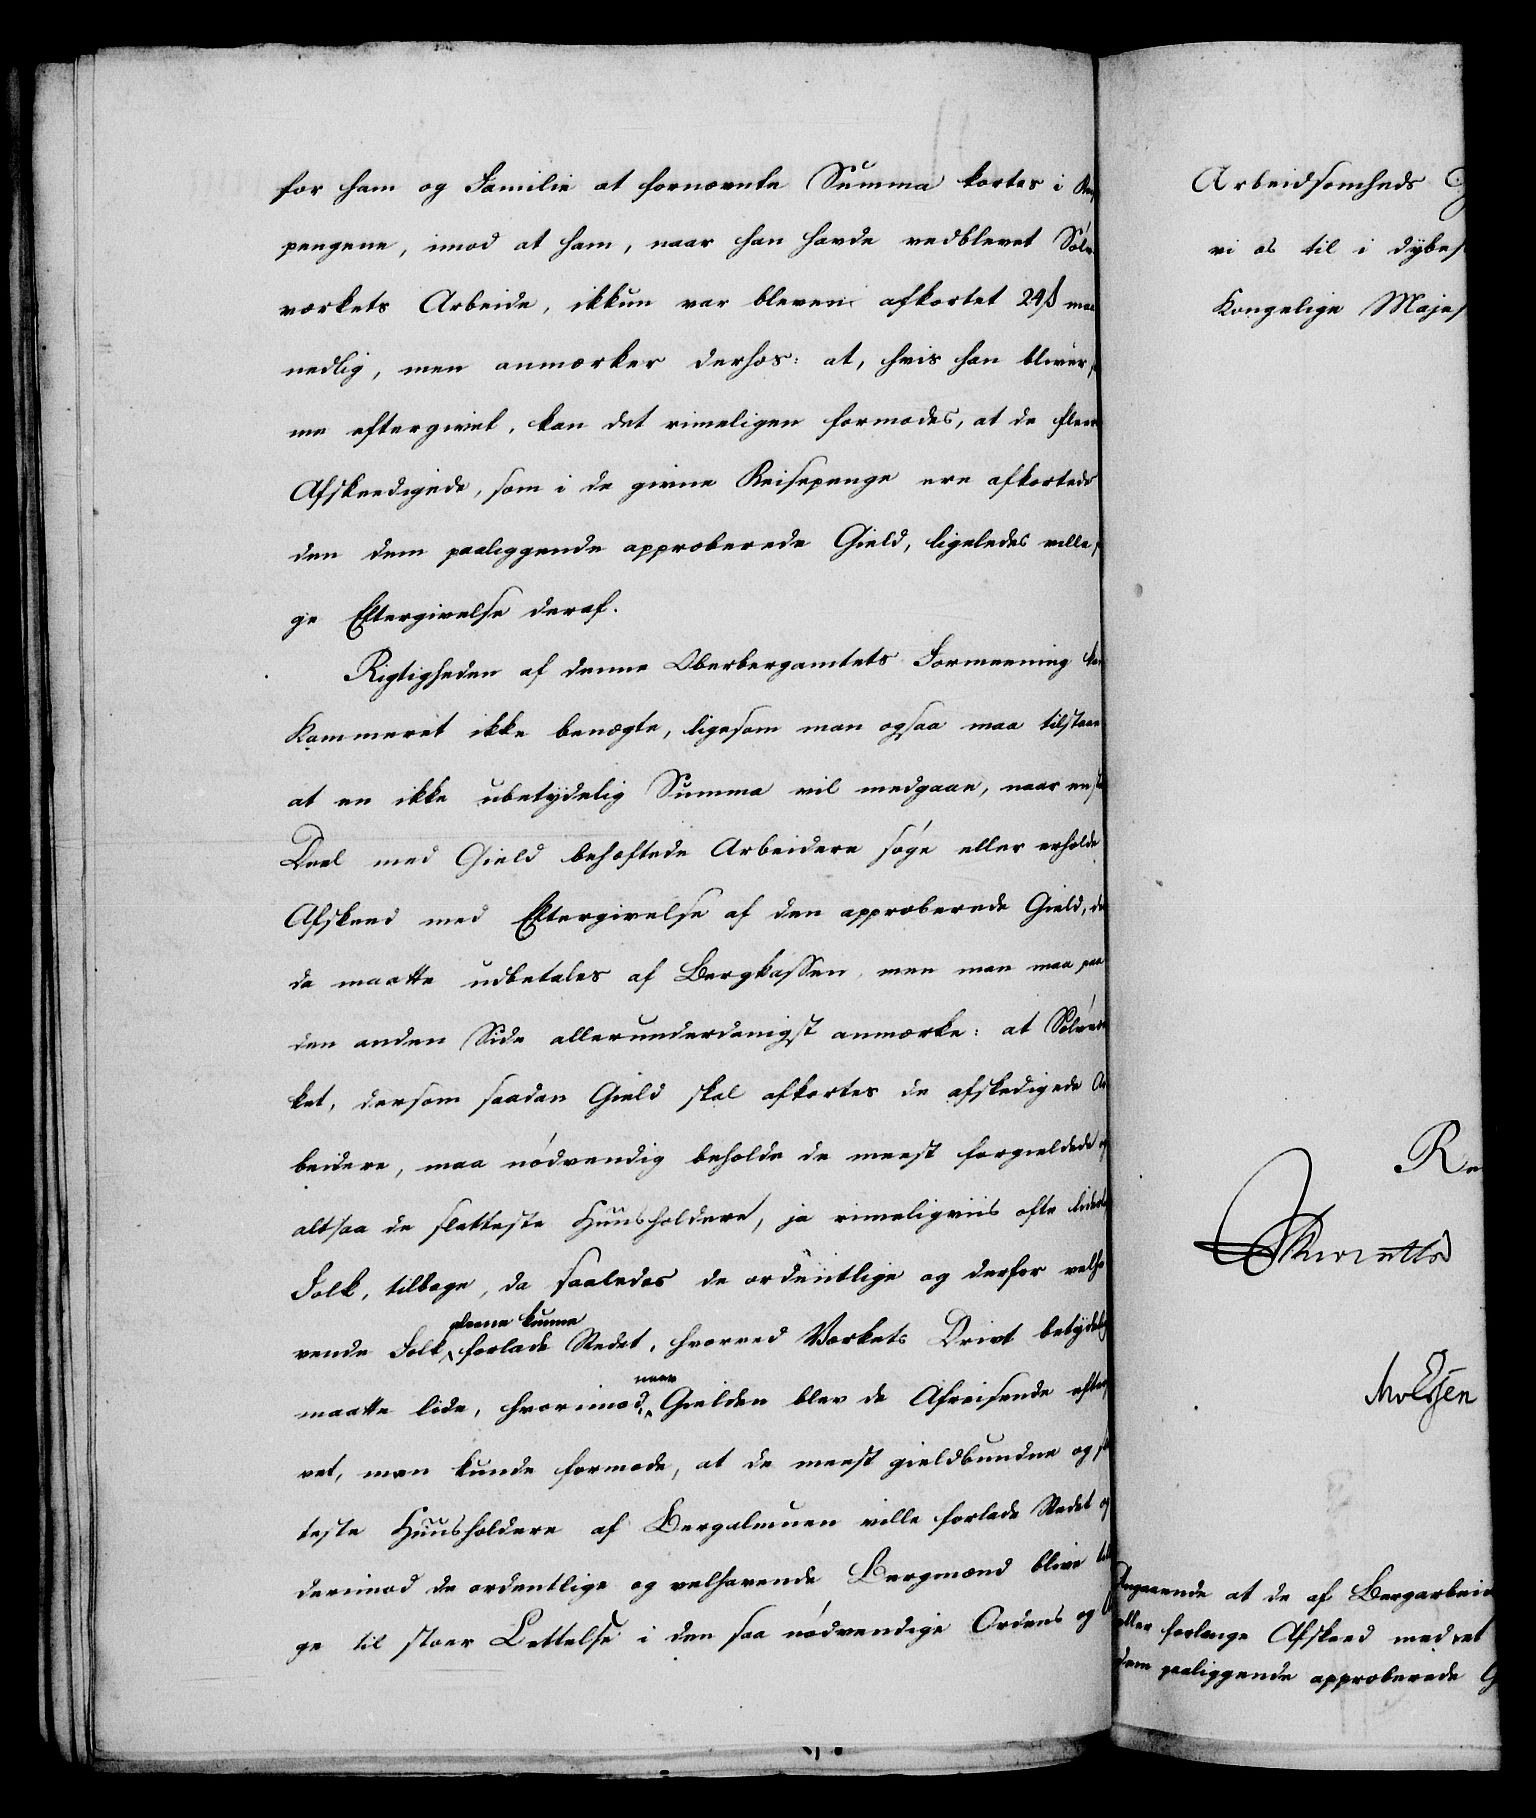 for ham og Familie at fornævnte Summa kortes i
pengene, imod at ham, naar han havde vedblevet Sölv-
værkets Arbeide, ikkun var bleven afkortet 24ß maa
nedlig, men anmærker derhos: at, hvis han bliver
me eftergivet, kan det rimeligen formodes, at de fleere
Afskeedigede, som i de givne Reisepenge ere afkortede
den dem paaliggende approberede Gield, ligeledes ville
ge Eftergivelse deraf.
Rigtigheden af denne Oberbergamtets Formeening kan
Kammeret ikke benægte, ligesom man ogsaa maa tilstaae
at en ikke ubetydelig Summa vil medgaae, naar en
Deel med Gield behæftede Arbeidere söge eller erholde
Afskeed med Eftergivelse af den approberede Gield, der
da maatte udbetales af Bergkassen, men man maa paa
den anden Side allerunderdanigst anmærke: at Sölvvær
ket, dersom saadan Gield skal afkortes de afskedigede Ar
beidere, maa nödvendig beholde de meest forgieldede og
altsaa de sletteste Huusholdere, ja rimeligviis ofte
Folk, tilbage, da saaledes de ordentlige og derfor velha
vende Folk alene kunne forlade Stedet, hvorved Værkets Drivt betydelig
maatte lide, hvorimod, naar Gielden blev de Afreisende efter
vet, man kunde formode, at de meest gieldbundne og
teste Huusholdere af Bergalmuen ville forlade Stedet og
derimod de ordentlige og velhavende Bergmænd blive
ge til stoer Lettelse i den saa nödvendige Ordens og
Arbeidsomheds
vi os til i dybes
Kongelige Majes
Re
Angaaende at de af Bergarbei
eller forlange Afskeed med et
dem paaliggende approberede G